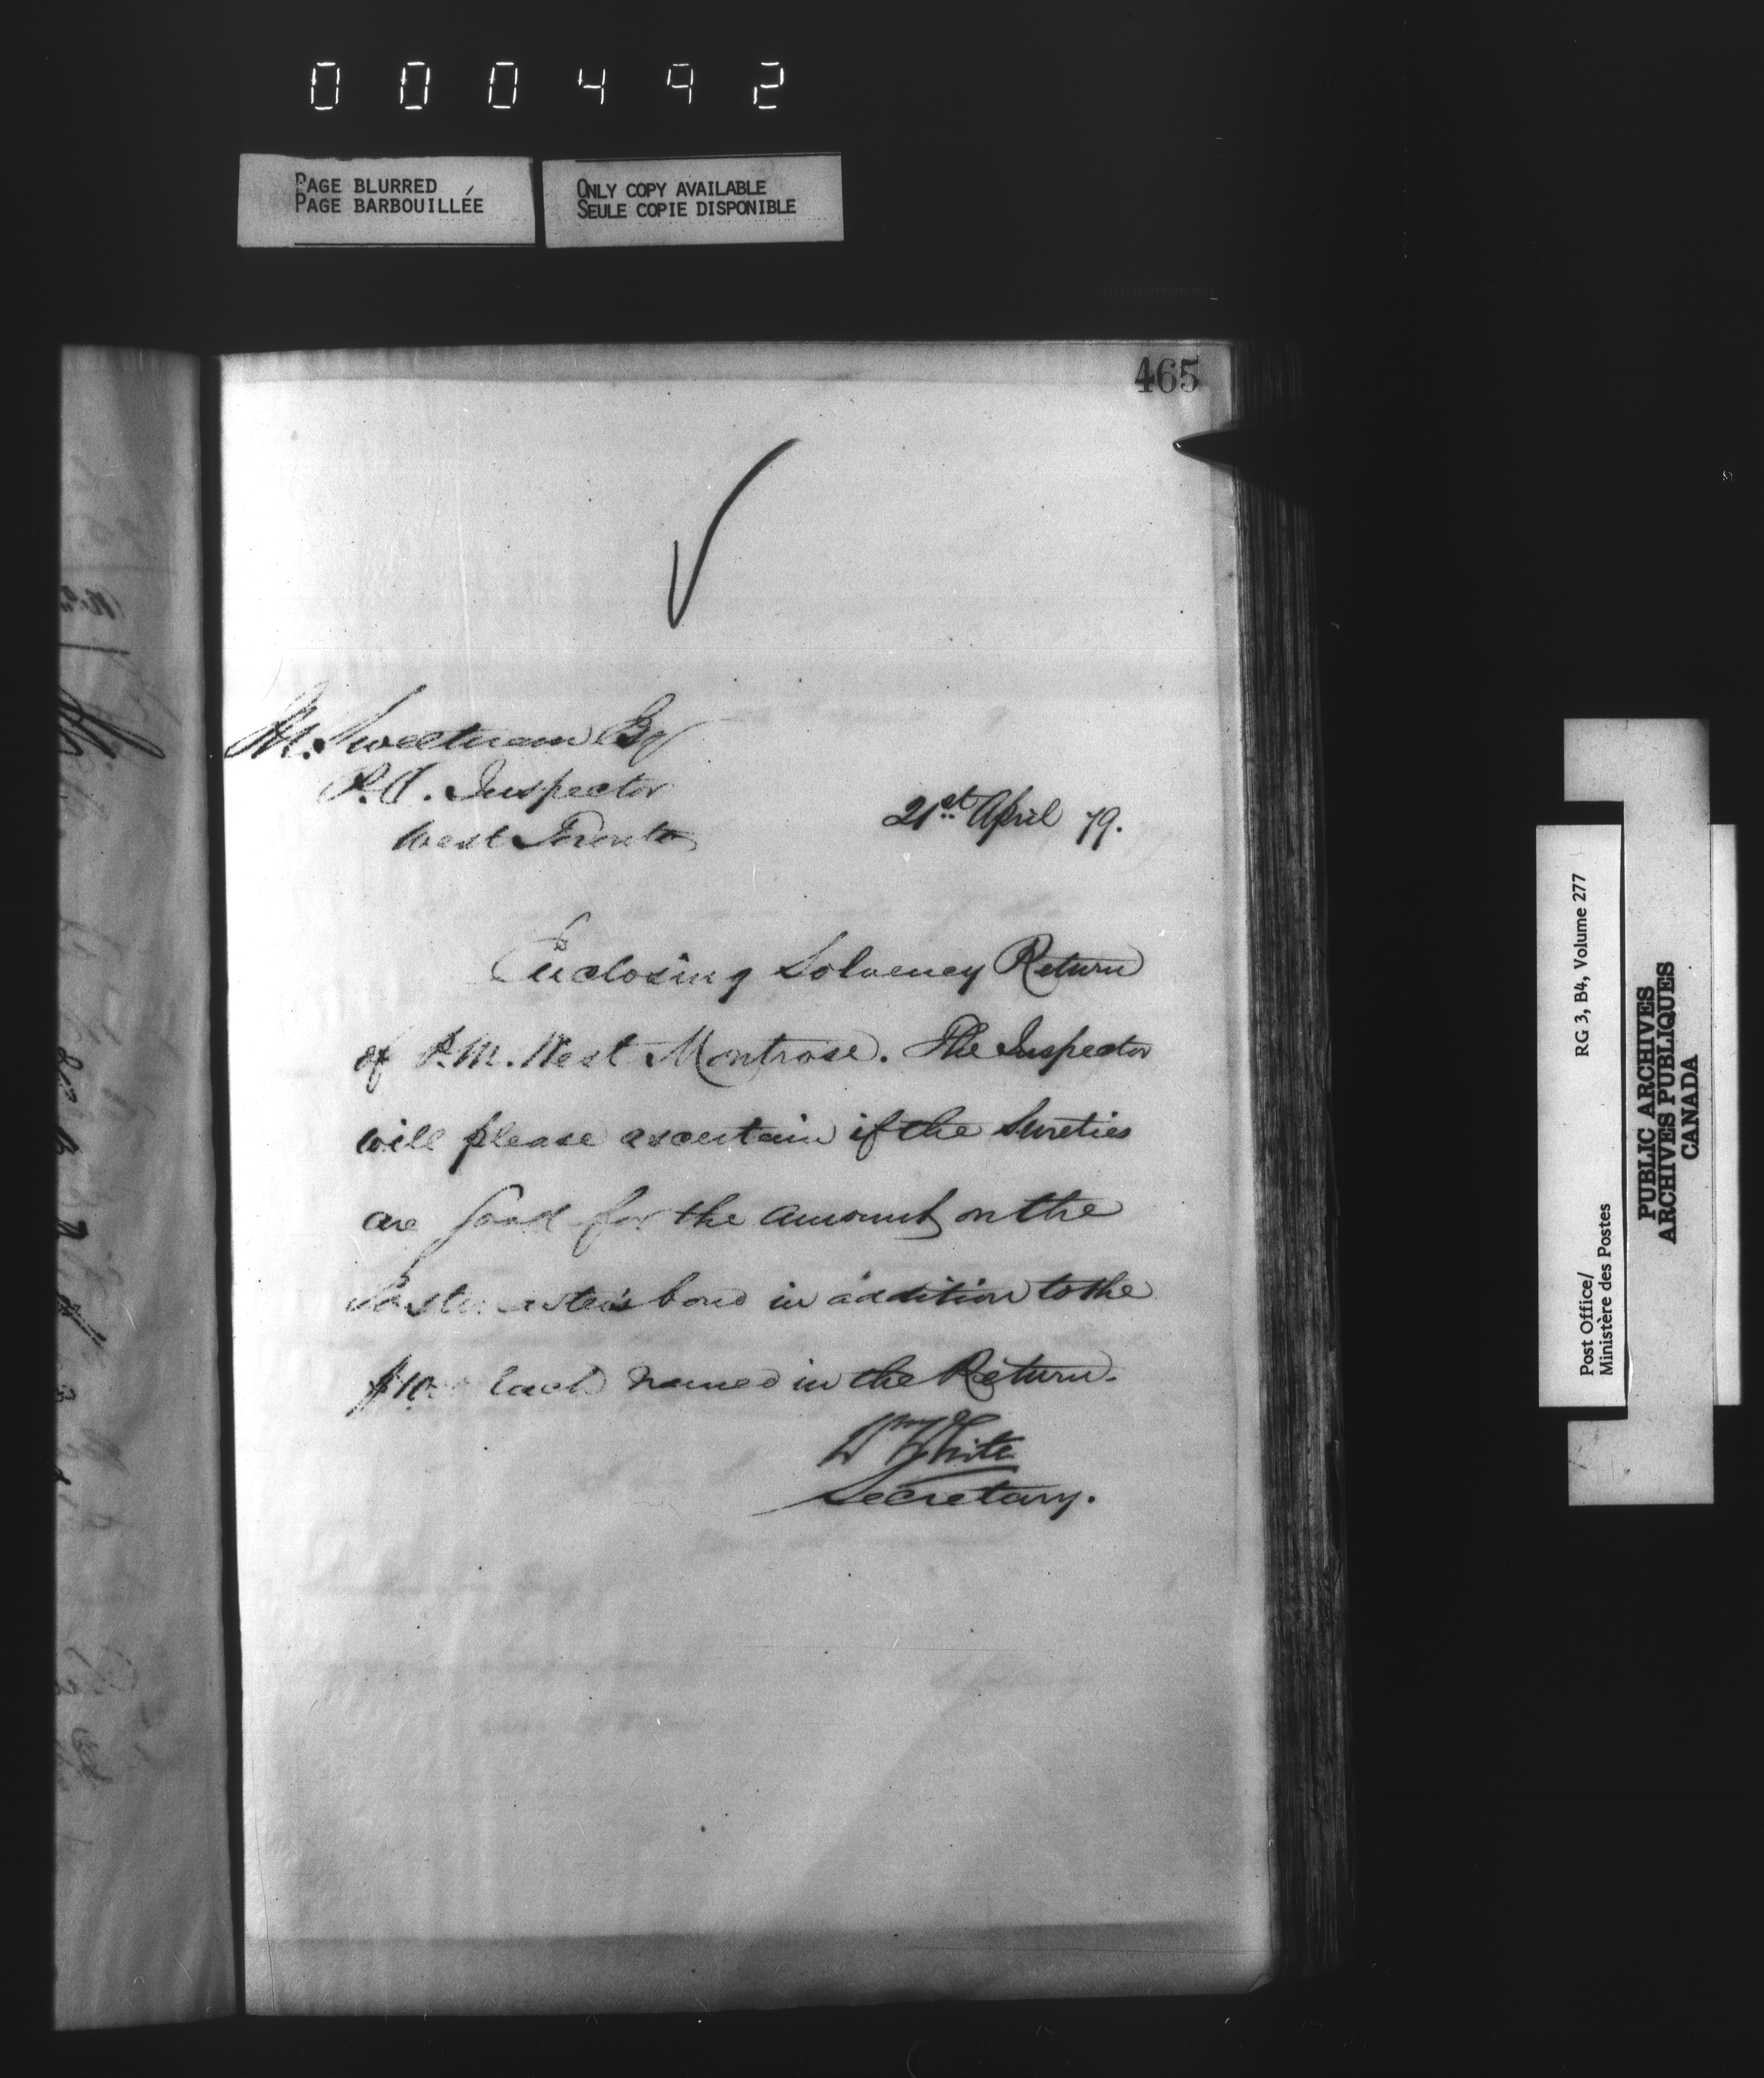 000492
PAGE BLURRED
PAGE BARBOUILLÉE
ONLY COPY AVAILABLE
SEULE COPIE DISPONIBLE
465
M. Sweetnam Esq
P.O. Inspector
West Toronto
21st April 79.
Enclosing Solvency Return
of P.M. West Montrose. The Inspector
will please ascertain if the Sureties
are good for the amount on the
Postmaster's bond in addition to the
each named in the Return.
Wm White
Secretary.
Post Office/
Ministère des Postes
RG 3, B4, Volume 277
PUBLIC ARCHIVES
ARCHIVES PUBLIQUES
CANADA